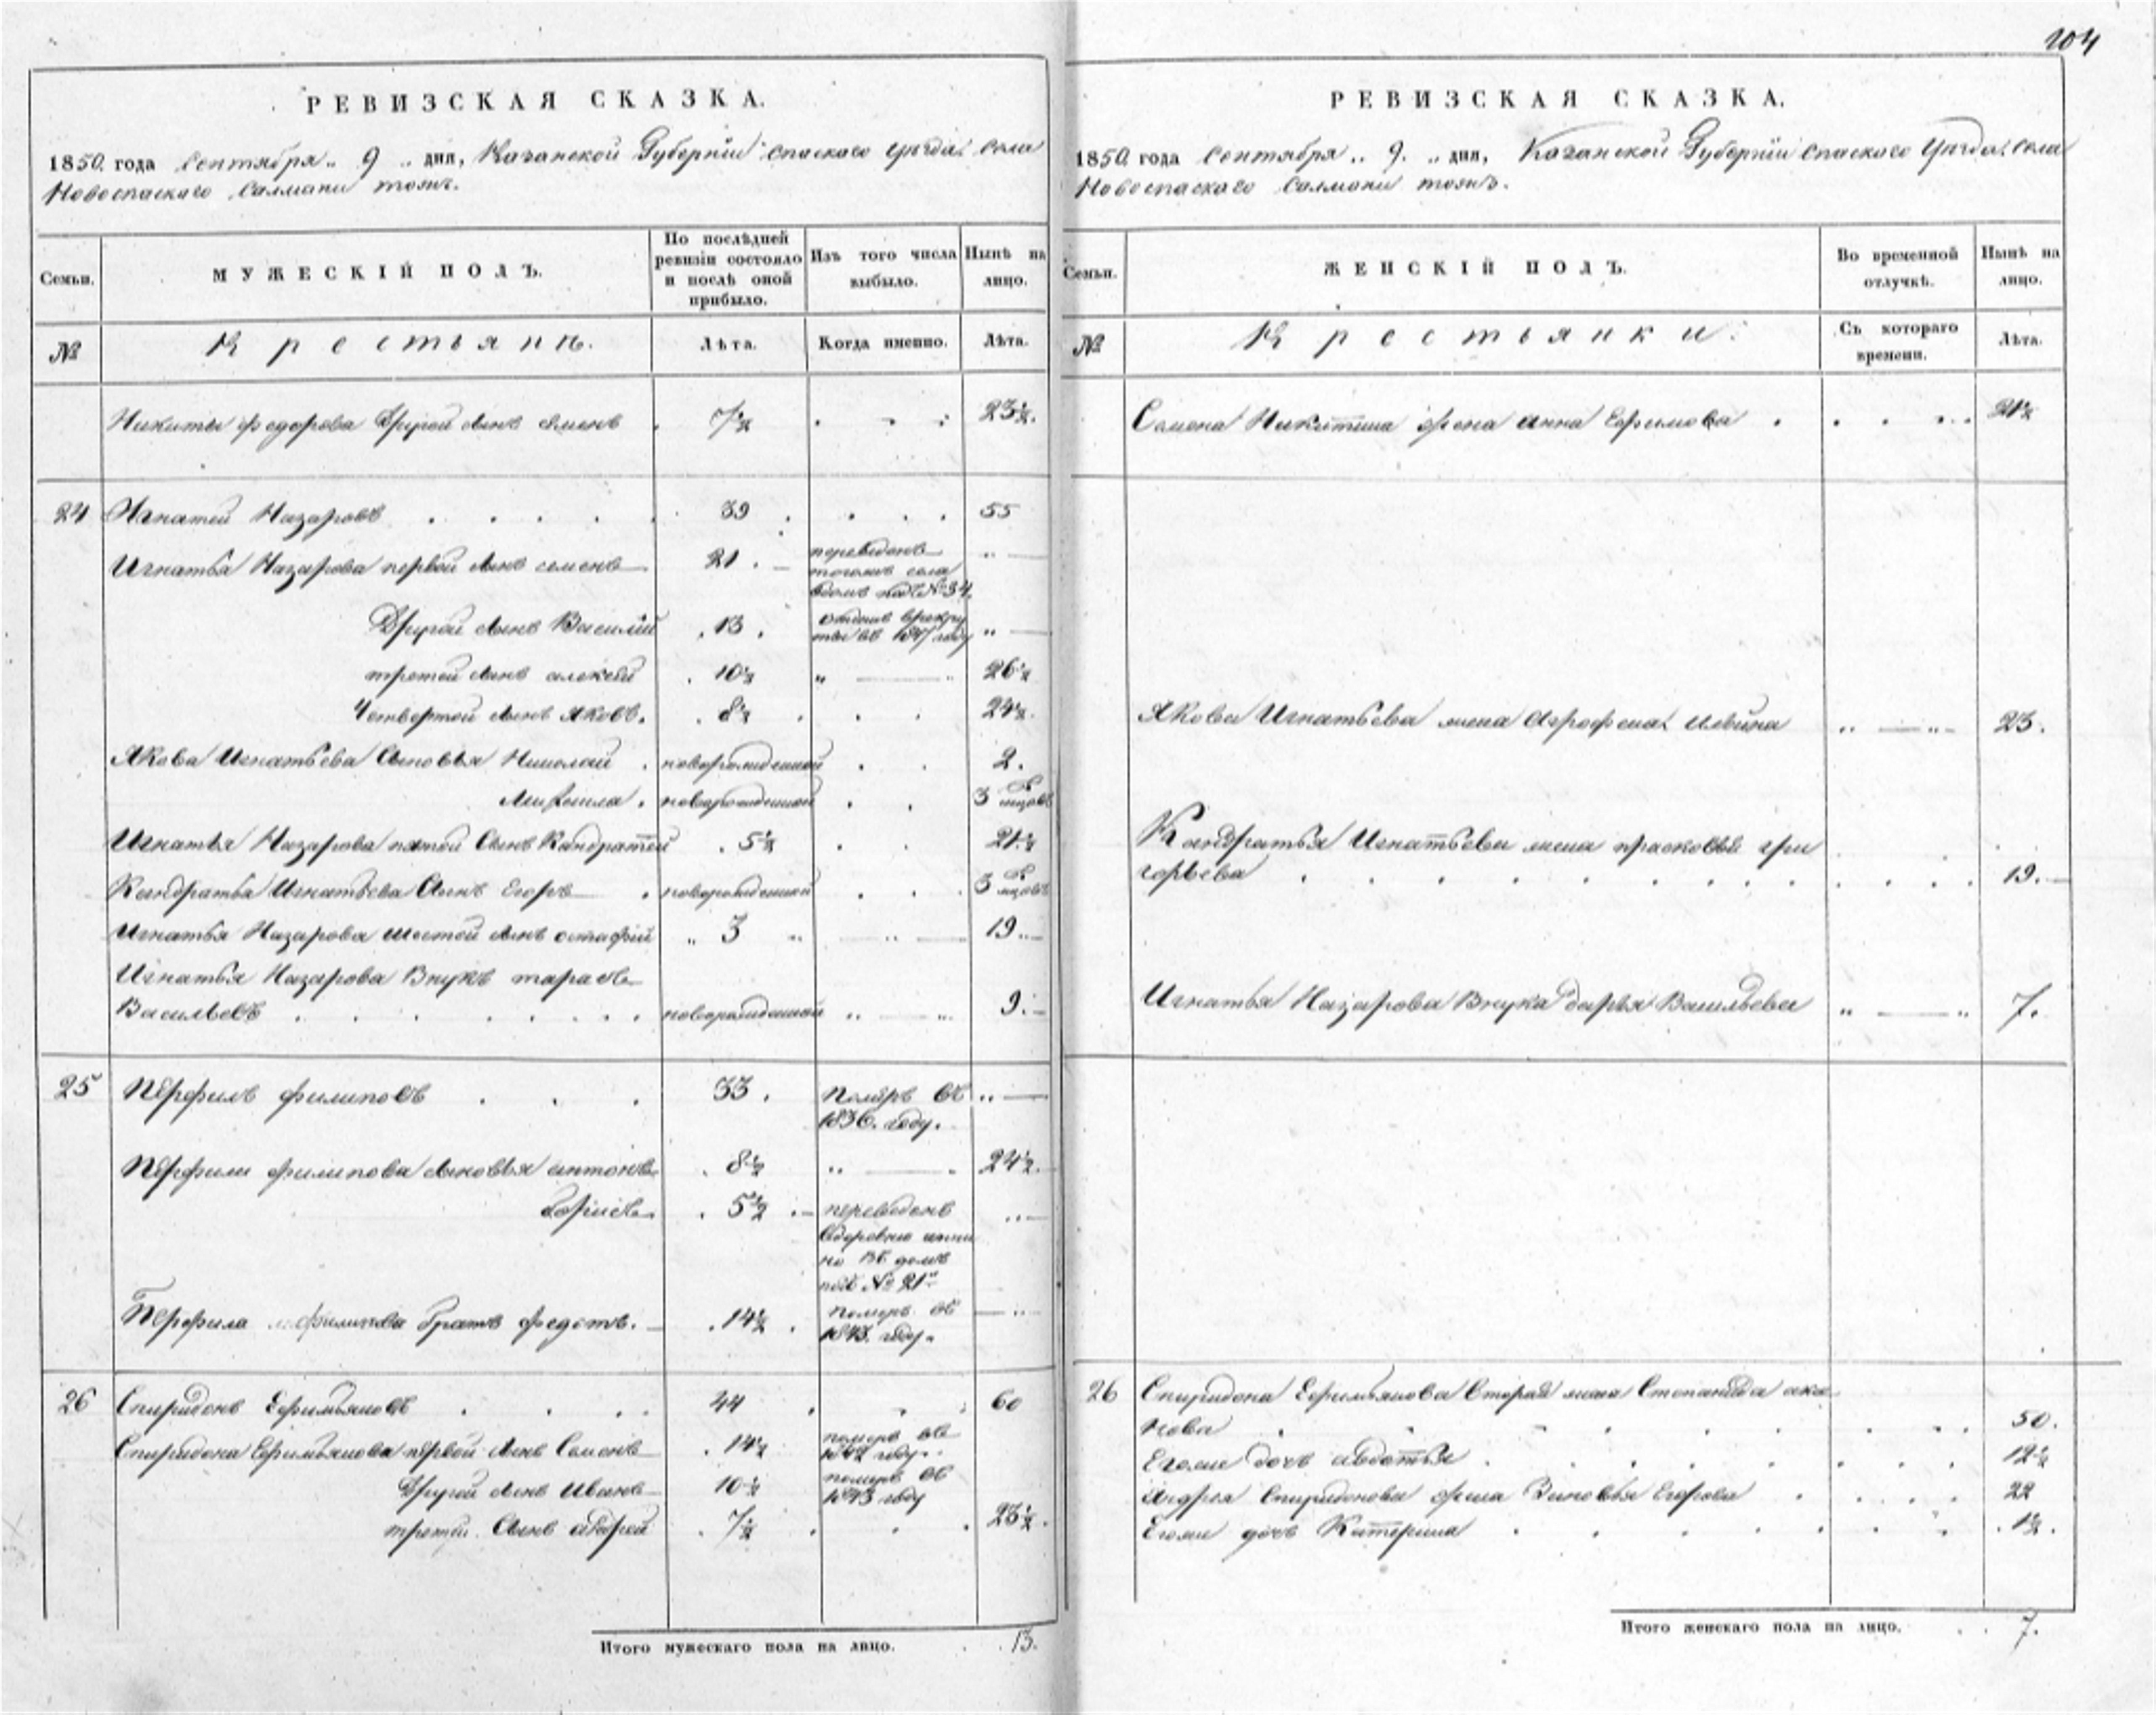 104
РЕВИЗСКАЯ СКАЗКА.
1850. года Сентября „ 9 „ дня, Казанской Губернiи спаскаго уѣзда. села
Новоспаскаго Салманы тожъ.
Семьи.
МУЖЕСКІЙ ПОЛЪ.
По послѣдней
ревизіи состояло
и послѣ оной
прибыло.
Изъ того числа
выбыло.
Нынѣ на
лицо.
№
Крестьянъ.
Лѣта.
Когда именно.
Лѣта.
Никиты федорова Другой сынъ семенъ . 7½ . . . 23½.
24 Игнатей Назаровъ . . . . . 39 . . . . 55
Игнатья Назарова первой сынъ семенъ 21 . переведенъ
тогожъ села
вдомъ подъ № 34.
Другой сынъ Василiй . 13 . отданъ врекру
ты въ 1847 году „
третей сынъ алексей . 10½ „ — „ 26½
Четвертой сынъ Яковъ. . 8½ . . . 24½.
Якова Игнатьева Сыновья Николай . новорожденной . . 2.
новорожденной . . 3 мѣсѣцовъ
Игнатья Назарова пятой Сынъ Кандратей . 5½ . . 21½
Кандратья Игнатьева Сынъ Егоръ . новорожденной . . . 3 мѣсѣцовъ
Игнатья Назарова шестой сынъ остафiй „ 3 „ — „ — 19.
Игнатья Назарова Внукъ тарасъ
Васильевъ . . . . . . . новорожденной „ „ 9.
25 Перфилъ филиповъ . . . 33 . Померъ въ
1836. году.
Перфила филипова сыновья антонъ . 8½ „ — . 24½.
борисъ . 5½ . переведенъ
вдеревню
въ домъ
подъ № 21м
Перфила филипова братъ федотъ. . 14½ . померъ въ
1843. году.
26 Спиридонъ Ефимьяновъ . . . . 44 . . . 60
Спиридона Ефимьянова первой сынъ Семенъ . 14½ померъ въ
году.
Другой сынъ Иванъ 10½ померъ въ
1843 году
третiй Сынъ андрей . 7½ . . . 23½.
Итого мужескаго пола на лицо. . . 13.
РЕВИЗСКАЯ СКАЗКА.
1850 года Сентября „ 9. „ дня, Казанской Губернiи спаскаго Уѣзда. села
Новоспаскаго Салманы тожъ.
Семьи.
ЖЕНСКІЙ ПОЛЪ.
Во временной
отлучкѣ.
Нынѣ на
лицо.
№
Крестьянки.
Съ котораго
времени.
Лѣта.
Семена Никитина жена анна Ефимова . . . . . 21½
Якова Игнатьева жена Агрофена Ильина „ — „ — 23.
Кандратья Игнатьева жена прасковья гри
горьева . . . . . . . . . . . . 19.
Игнатья Назарова Внука дарья Васильева „ — „ 7.
26 Спиридона Ефимьянова Вторая жена Степанида
нова . . . . . . . . . 50.
Егоже дочь авдотья . . . . . . . 12½
Андрея Спиридонова жена Зиновья Егорова . . . . . 22
Егоже дочь Катерина . . . . . . . . 1½.
Итого женскаго пола на лицо. . . 7.